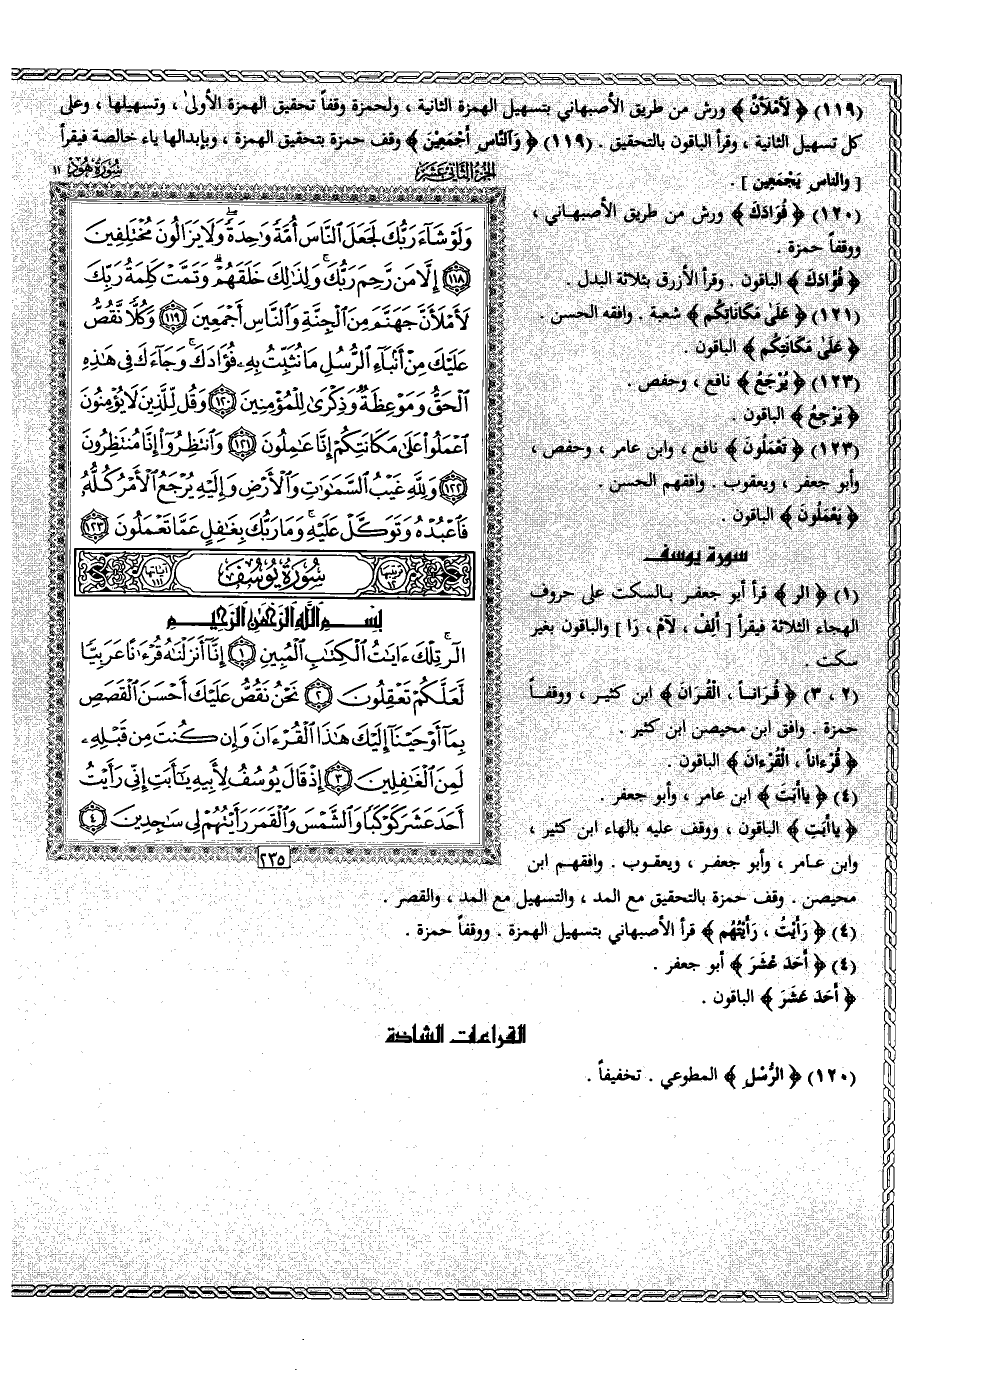 (١١٩) ﴿ لَأَمْلَأَنَّ ﴾ ورش من طريق الأصبهاني بتسهيل الهمزة الثانية ، ولحمزة وقفاً تحقيق الهمزة الأولىٰ ، وتسهيلها ، وعلى
كل تسهيل الثانية ، وقرأ الباقون بالتحقيق . (١١٩) ﴿ وَالنَّاسِ أَجْمَعِينَ ﴾ وقف حمزة بتحقيق الهمزة ، وبإبدالها ياء خالصة فيقرأ
[ والناسِ يَجْمَعِين ] .
(١٢٠) ﴿ فُوَادَكَ ﴾ ورش من طريق الأصبهـاني ،
ووقفاً حمزة .
﴿ فُؤَادَكَ ﴾ الباقون . وقرأ الأزرق بثلاثة البدل .
(١٢١) ﴿ عَلَىٰ مَكَانَاتِكُم ﴾ شعبة . وافقه الحسن .
﴿ عَلَىٰ مَكَانَتِكُم ﴾ الباقون .
(١٢٣) ﴿ يُرْجَعُ ﴾ نافع ، وحفص .
﴿ يَرْجِعُ ﴾ الباقون .
(١٢٣) ﴿ تَعْمَلُونَ ﴾ نافع ، وابن عامر ، وحفص ،
وأبو جعفر ، ويعقوب . وافقهم الحسن .
﴿ يَعْمَلُونَ ﴾ الباقون .
سورة يوسف
(١) ﴿ الر ﴾ قرأ أبو جعفـر بـالسكت على حروف
الهجاء الثلاثة فيقرأ [ أَلِفْ ، لَآمْ ، رَا ] والباقون بغير
سكت .
(٢ ، ٣) ﴿ قُرَانـاً ، الْقُرَانَ ﴾ ابن كثيـر ، ووقفـاً
حمزة . وافق ابن محيصن ابن كثير .
﴿ قُرْءَاناً ، الْقُرْءَانَ ﴾ الباقون .
(٤) ﴿ يَاأَبَتَ ﴾ ابن عامر ، وأبو جعفر .
﴿ يَاأَبَتِ ﴾ الباقون ، ووقف عليه بالهاء ابن كثير ،
وابن عـامر ، وأبو جعفـر ، ويعقـوب . وافقهـم ابن
محيصن . وقف حمزة بالتحقيق مع المد ، والتسهيل مع المد ، والقصر .
(٤) ﴿ رَأَيْتُ ، رَأَيْتُهُم ﴾ قرأ الأصبهاني بتسهيل الهمزة . ووقفاً حمزة .
(٤) ﴿ أَحَدَ عْشَرَ ﴾ أبو جعفر .
﴿ أَحَدَ عَشَرَ ﴾ الباقون .
القراءات الشاذة
(١٢٠) ﴿ الرُّسْلِ ﴾ المطوعي . تخفيفاً .
الجزء الثاني عشر سورة هود ١١
وَلَوْ شَآءَ رَبُّكَ لَجَعَلَ ٱلنَّاسَ أُمَّةً وَٰحِدَةً ۖ وَلَا يَزَالُونَ مُخْتَلِفِينَ
١١٨ إِلَّا مَن رَّحِمَ رَبُّكَ ۚ وَلِذَٰلِكَ خَلَقَهُمْ ۗ وَتَمَّتْ كَلِمَةُ رَبِّكَ
لَأَمْلَأَنَّ جَهَنَّمَ مِنَ ٱلْجِنَّةِ وَٱلنَّاسِ أَجْمَعِينَ ١١٩ وَكُلًّا نَّقُصُّ
عَلَيْكَ مِنْ أَنۢبَآءِ ٱلرُّسُلِ مَا نُثَبِّتُ بِهِۦ فُؤَادَكَ ۚ وَجَآءَكَ فِى هَٰذِهِ
ٱلْحَقُّ وَمَوْعِظَةٌ وَذِكْرَىٰ لِلْمُؤْمِنِينَ ١٢٠ وَقُل لِّلَّذِينَ لَا يُؤْمِنُونَ
ٱعْمَلُوا۟ عَلَىٰ مَكَانَتِكُمْ إِنَّا عَٰمِلُونَ ١٢١ وَٱنتَظِرُوٓا۟ إِنَّا مُنتَظِرُونَ
١٢٢ وَلِلَّهِ غَيْبُ ٱلسَّمَٰوَٰتِ وَٱلْأَرْضِ وَإِلَيْهِ يُرْجَعُ ٱلْأَمْرُ كُلُّهُۥ
فَٱعْبُدْهُ وَتَوَكَّلْ عَلَيْهِ ۚ وَمَا رَبُّكَ بِغَٰفِلٍ عَمَّا تَعْمَلُونَ ١٢٣
سُورَةُ يُوسُفَ
بِسْمِ ٱللَّهِ ٱلرَّحْمَٰنِ ٱلرَّحِيمِ
الٓر ۚ تِلْكَ ءَايَٰتُ ٱلْكِتَٰبِ ٱلْمُبِينِ ١ إِنَّآ أَنزَلْنَٰهُ قُرْءَٰنًا عَرَبِيًّا
لَّعَلَّكُمْ تَعْقِلُونَ ٢ نَحْنُ نَقُصُّ عَلَيْكَ أَحْسَنَ ٱلْقَصَصِ
بِمَآ أَوْحَيْنَآ إِلَيْكَ هَٰذَا ٱلْقُرْءَانَ وَإِن كُنتَ مِن قَبْلِهِۦ
لَمِنَ ٱلْغَٰفِلِينَ ٣ إِذْ قَالَ يُوسُفُ لِأَبِيهِ يَٰٓأَبَتِ إِنِّى رَأَيْتُ
أَحَدَ عَشَرَ كَوْكَبًا وَٱلشَّمْسَ وَٱلْقَمَرَ رَأَيْتُهُمْ لِى سَٰجِدِينَ ٤
٢٣٥